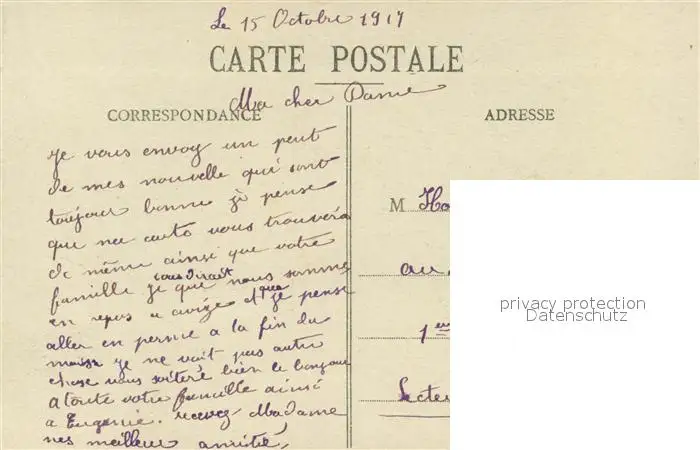 Le 15 Octobre 1917
CARTE POSTALE
Ma cher Dame
CORRESPONDANCE
je vous envoy un peut
de mes nouvelle qui sont
toujour bonne je pense
que ma carto vous trouvera
de même ainsi que votre
famille je vous dirait que nous sommes
en repos a et que je pense
aller en permie a la fin du
mois je ne voit pas autre
chose vous soiteré bien le bonjour
a toute votre famille ainsi
a Eugenie. recevez Madame
mes meilleur amitié,
ADRESSE
M
au
1er
Secteu
privacy protection
Datenschutz